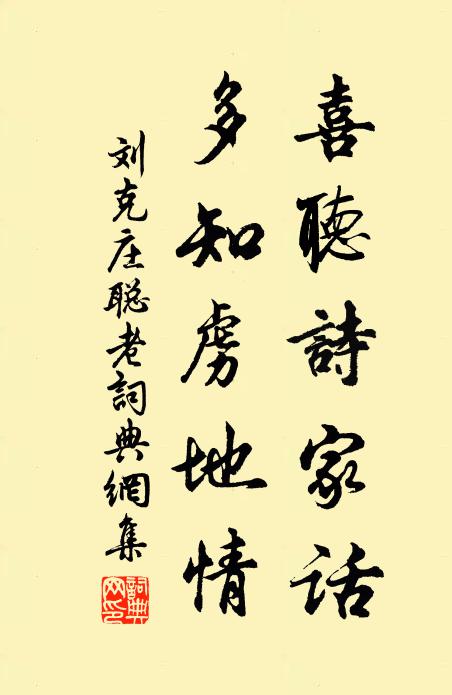 喜聽詩家話
多知虜地情
刘克庄聪老詞典網集
詞典网印